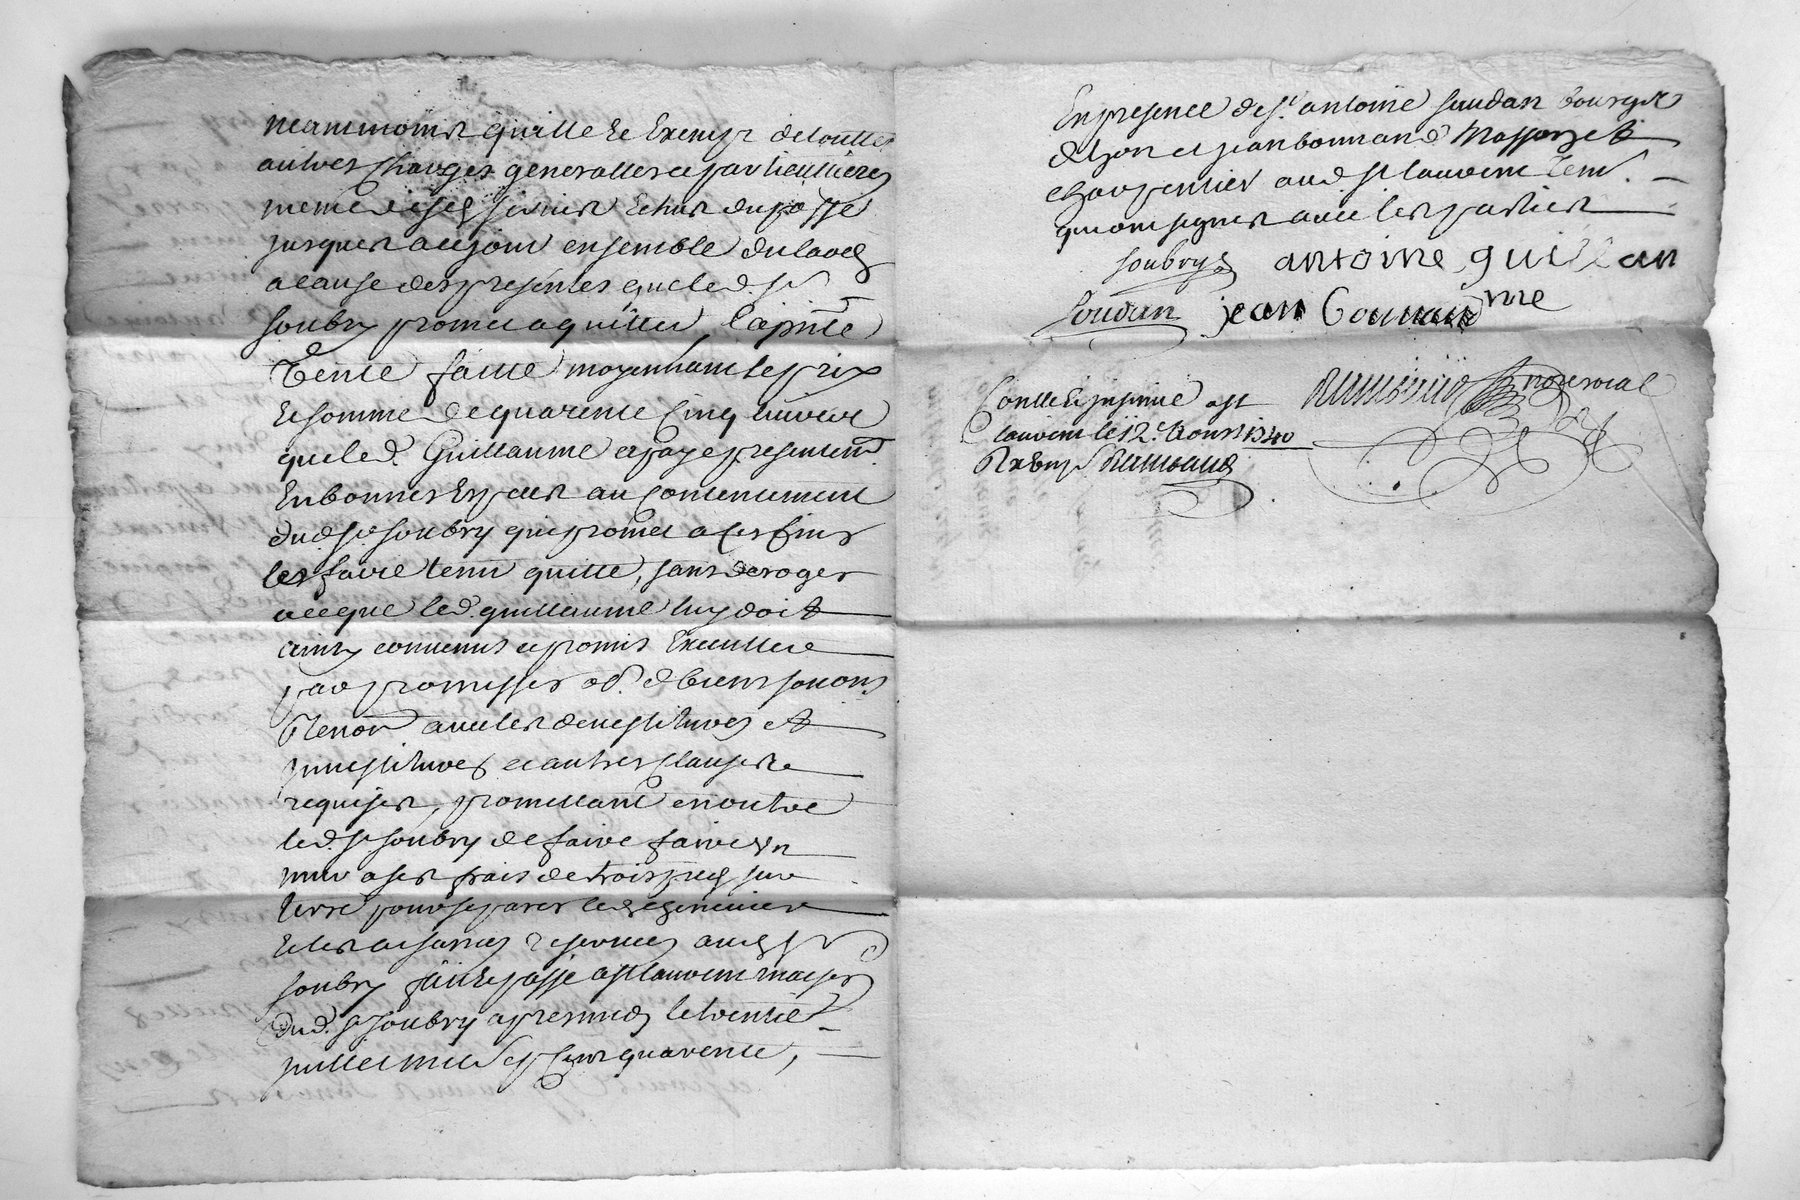 neanmoins quitte et Exempt de touttes
autres charges generalles et particullieres
meme desd servis Echus du passé
jusques a ce jour ensemble du laod
a cause des presentes que led. Sr
Soubry promet aquitter, la pnte
Vente faitte moyennant le prix
et somme de quarente Cinq livres
que led. Guillaume a payé presentemt
En bonnes Especes au Contentement
dud. Sr Soubry qui promet a ces fins
les faire tenir quitte, sans deroger
a ce que led. guillaume luy doit
ainsy convenus et promis Executter
par promesses ob. de biens
avec les devestitures et
investitures et autres clauses
requises, promettant en outre
led. Sr Soubry de faire faire un
mur a ses frais de trois pieds sur
terre pour separer
reservées aud Sr
Soubry fait et passé a St laurent maison
dud. Sr Soubry apres midy le vente
juillet mil sept cent quarente,
En presence de Sr antoine Soudan bourgeois
de Lyon et jean bonnand
charpentier aud. St laurent
qui ont signés avec les parties
Soubry antoine guillau
Soudan jean Bonnand
Conttollé insinué a St
laurent le 12e. Aoust 1740
Rambaud